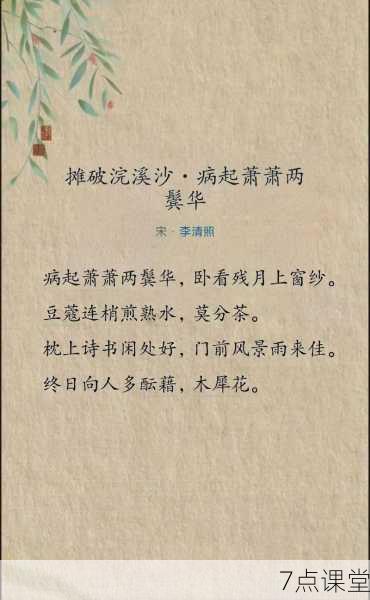 摊破浣溪沙·病起萧萧两
鬓华
宋·李清照
病起萧萧两鬓华，卧看残月上窗纱。
豆蔻连梢煎熟水，莫分茶。
枕上诗书闲处好，门前风景雨来佳。
终日向人多酝藉，木犀花。
7点课堂